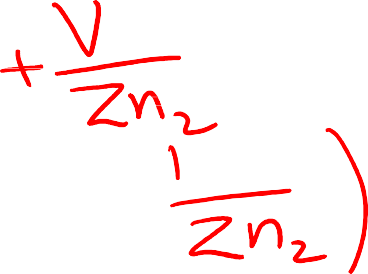 + V
Zn₂
1
Zn₂ )